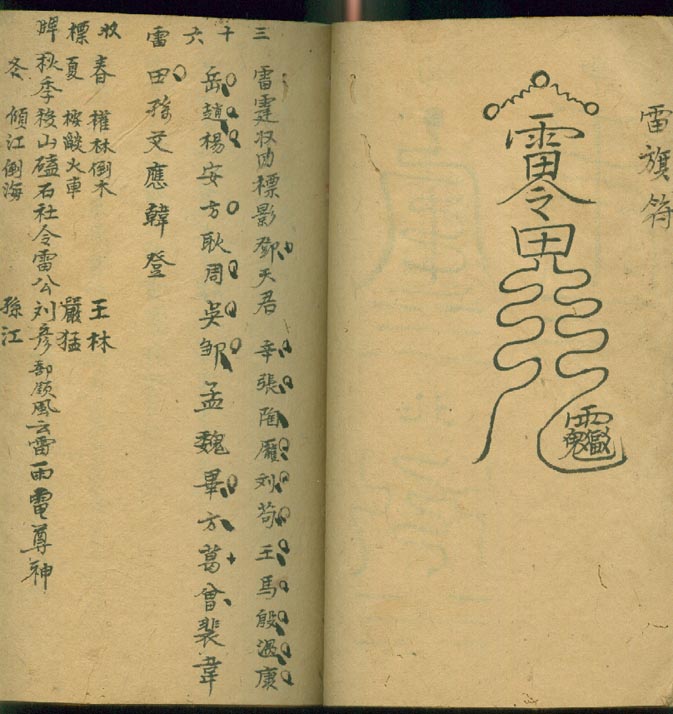 雷旗符
三十六雷
雷霆収㽵標影鄧天君 辛張陶龐刘苟王馬殷溫康
岳趙楊安方耿周吳邹孟魏畢方葛曾裴韋
田孫交應韓登
收春 權林倒木 王林
標夏 火車 嚴猛
牌秋季移山磕石社令雷公刘彦部領風云雷雨電尊神
冬 傾江倒海 孫江